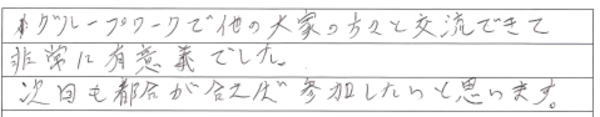 グループワークで他の大家の方々と交流できて
非常に有意義でした。
次回も都合が合えば参加したいと思います。